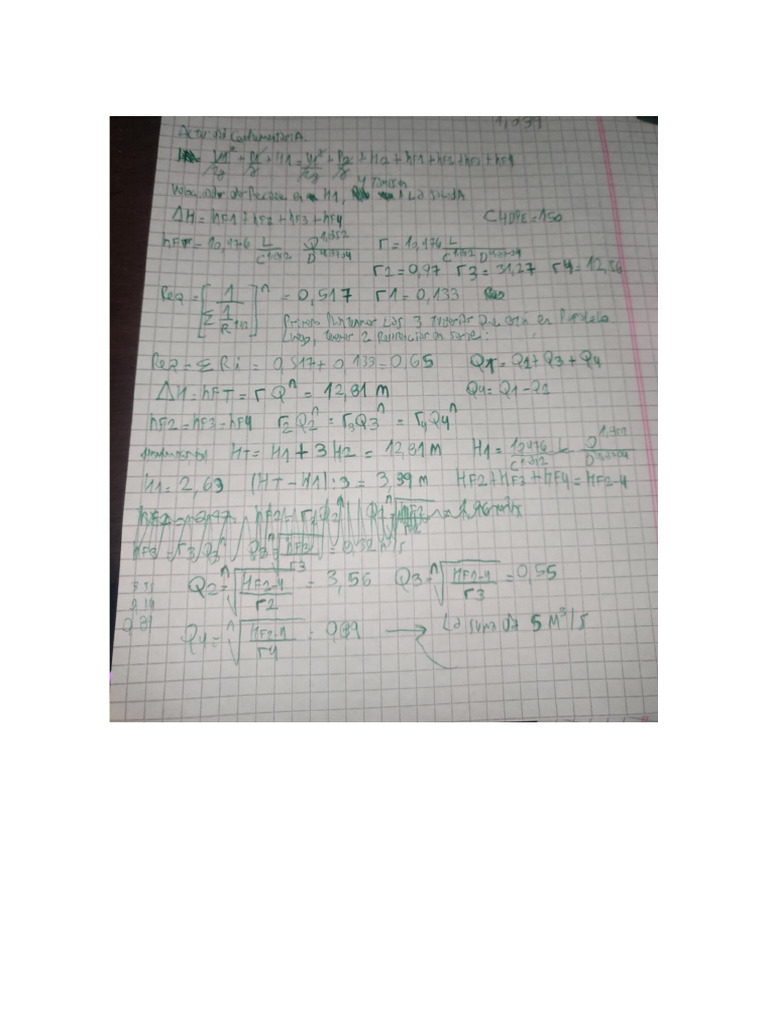 1,039
Actividad Complementaria.
V1²/2g + P1/γ + H1 = V2²/2g + P2/γ + H2 + hf1 + hf2 + hf3 + hf4
y también
H1, La salida
ΔH = hF1 + hF2 + hF3 + hF4 CHDPE = 150
hFT = 10,476 L/C^1,852 Q^1,852/D^4,8704 r = 10,476 L/C^1,852 D^4,8704
r2 = 0,97 r3 = 31,27 r4 = 12,56
Req = [1/Σ 1/R^1/n]^n = 0,517 r1 = 0,133
Primero Juntamos Las 3 tuberías que están en Paralelo
Luego, tener 2 en serie:
Req = Σ Ri = 0,517 + 0,133 = 0,65 QT = Q1 + Q3 + Q4
ΔH = hFT = r Q^n = 12,81 m Q4 = Q1 - Q2
hF2 = hF3 = hF4 r2Q2^n = r3Q3^n = r4Q4^n
HT = H1 + 3H2 = 12,81 m H1 = 10,476/C^1,852 L Q^1,852/D^4,8704
h1 = 2,63 (HT - H1):3 = 3,39 m HF2 + HF3 + HF4 = HF2-4
hF3 = r3 Q3^n Q3 = ⁿ√hF3/r3
3,55 Q2 = ⁿ√HF2-4/r2 = 3,56 Q3 = ⁿ√HF2-4/r3 = 0,55
0,81 Q4 = ⁿ√HF2-4/r4 = 0,89 → La suma da 5 M³/s